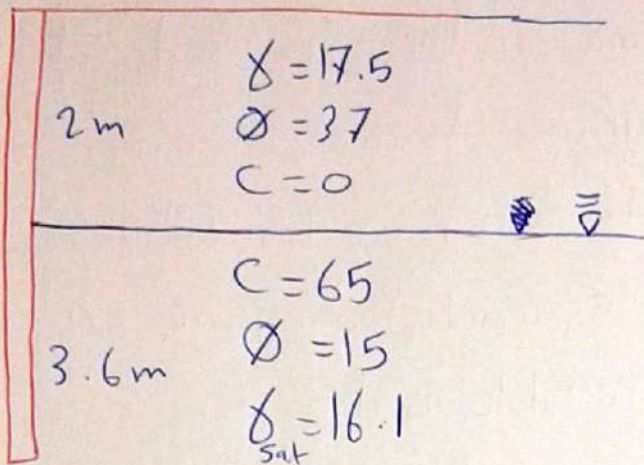 2m
γ = 17.5
Ø = 37
C = 0
3.6m
C = 65
Ø = 15
γsat = 16.1